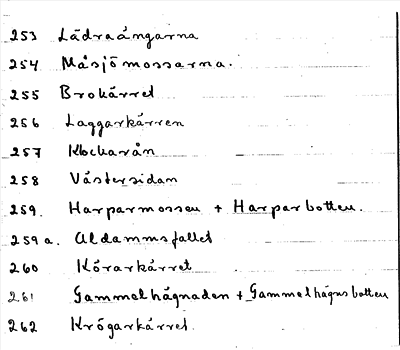 253 Lädraängarna
254 Måsjömossarna.
255 Brokärret
256 Laggarkärren
257 Klockarån
258 Västersidan
259. Harparmossen + Harparbotten.
259 a. Aldammsfallet
260 Körarkärret
261 Gammelhägnaden + Gammelhägnsbotten
262 Krögarkärret.